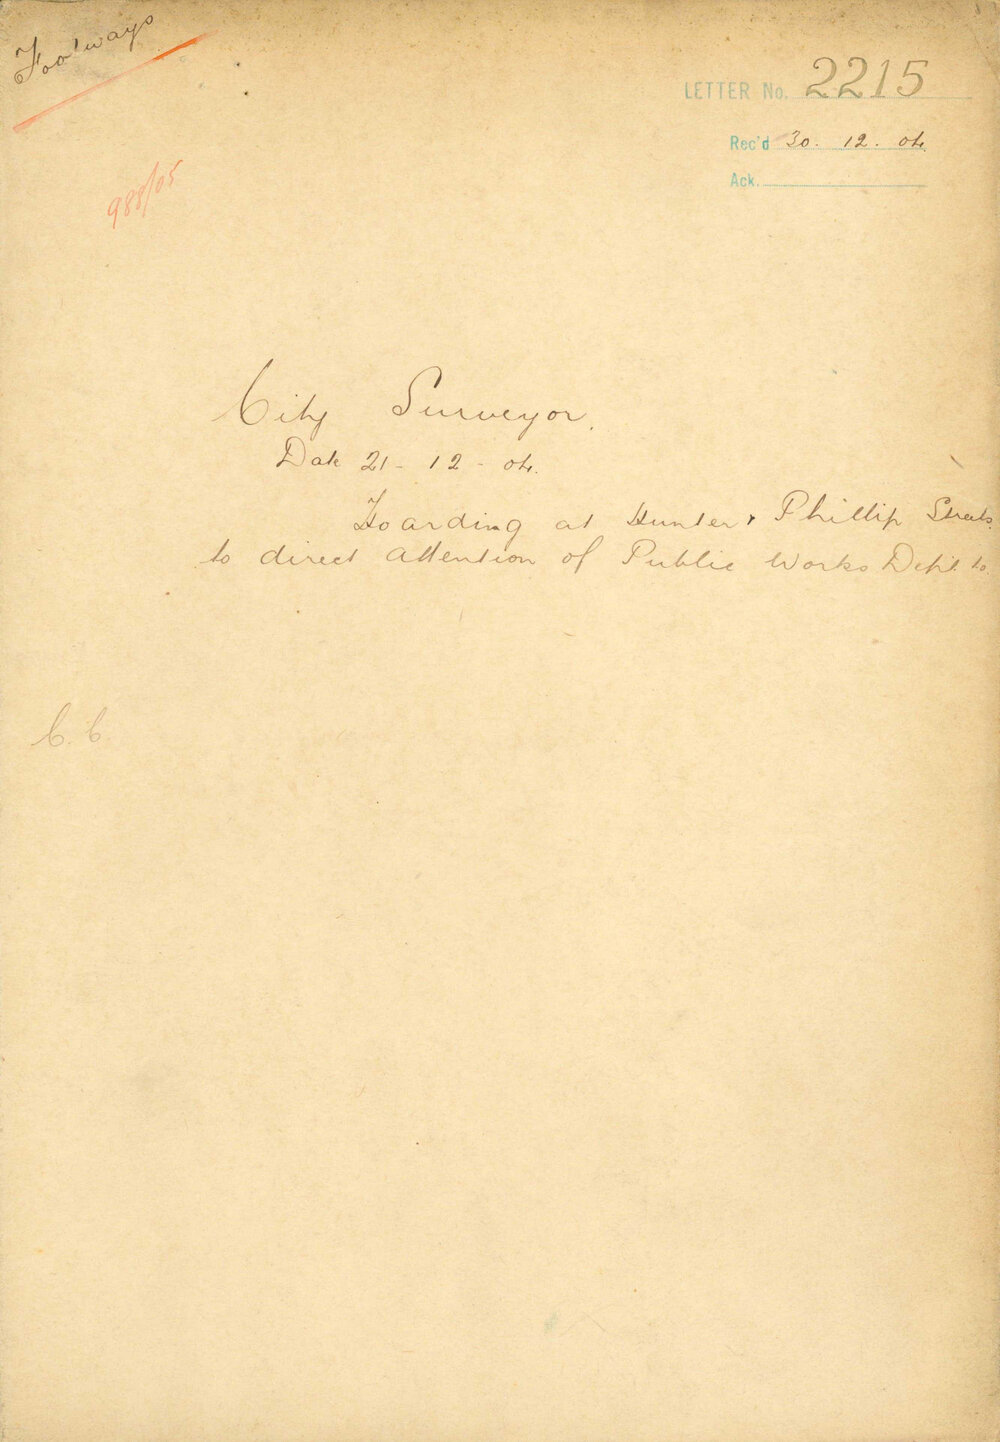 Footways
LETTER No. 2215
Rec'd 30. 12. 04.
Ack.
988/05
City Surveyor.
Date 21 - 12 - 04.
Hoarding at Hunter & Phillip Streets.
to direct attention of Public Works Dept. to
C. C.